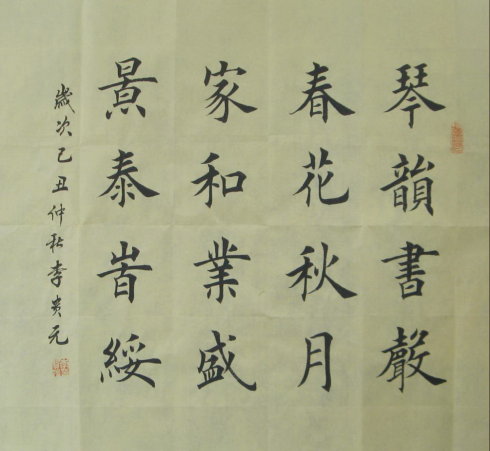 琴韻書聲
春花秋月
家和業盛
景泰旹綏
歲次己丑仲秋李贵元